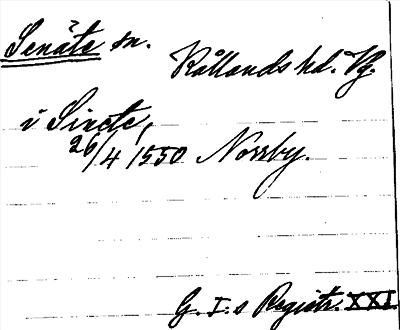 Senäte sn.
Kållands hd. Vg.
i Sinete,
26/4 1550 Norrby.
G. I:s Registr. XXI